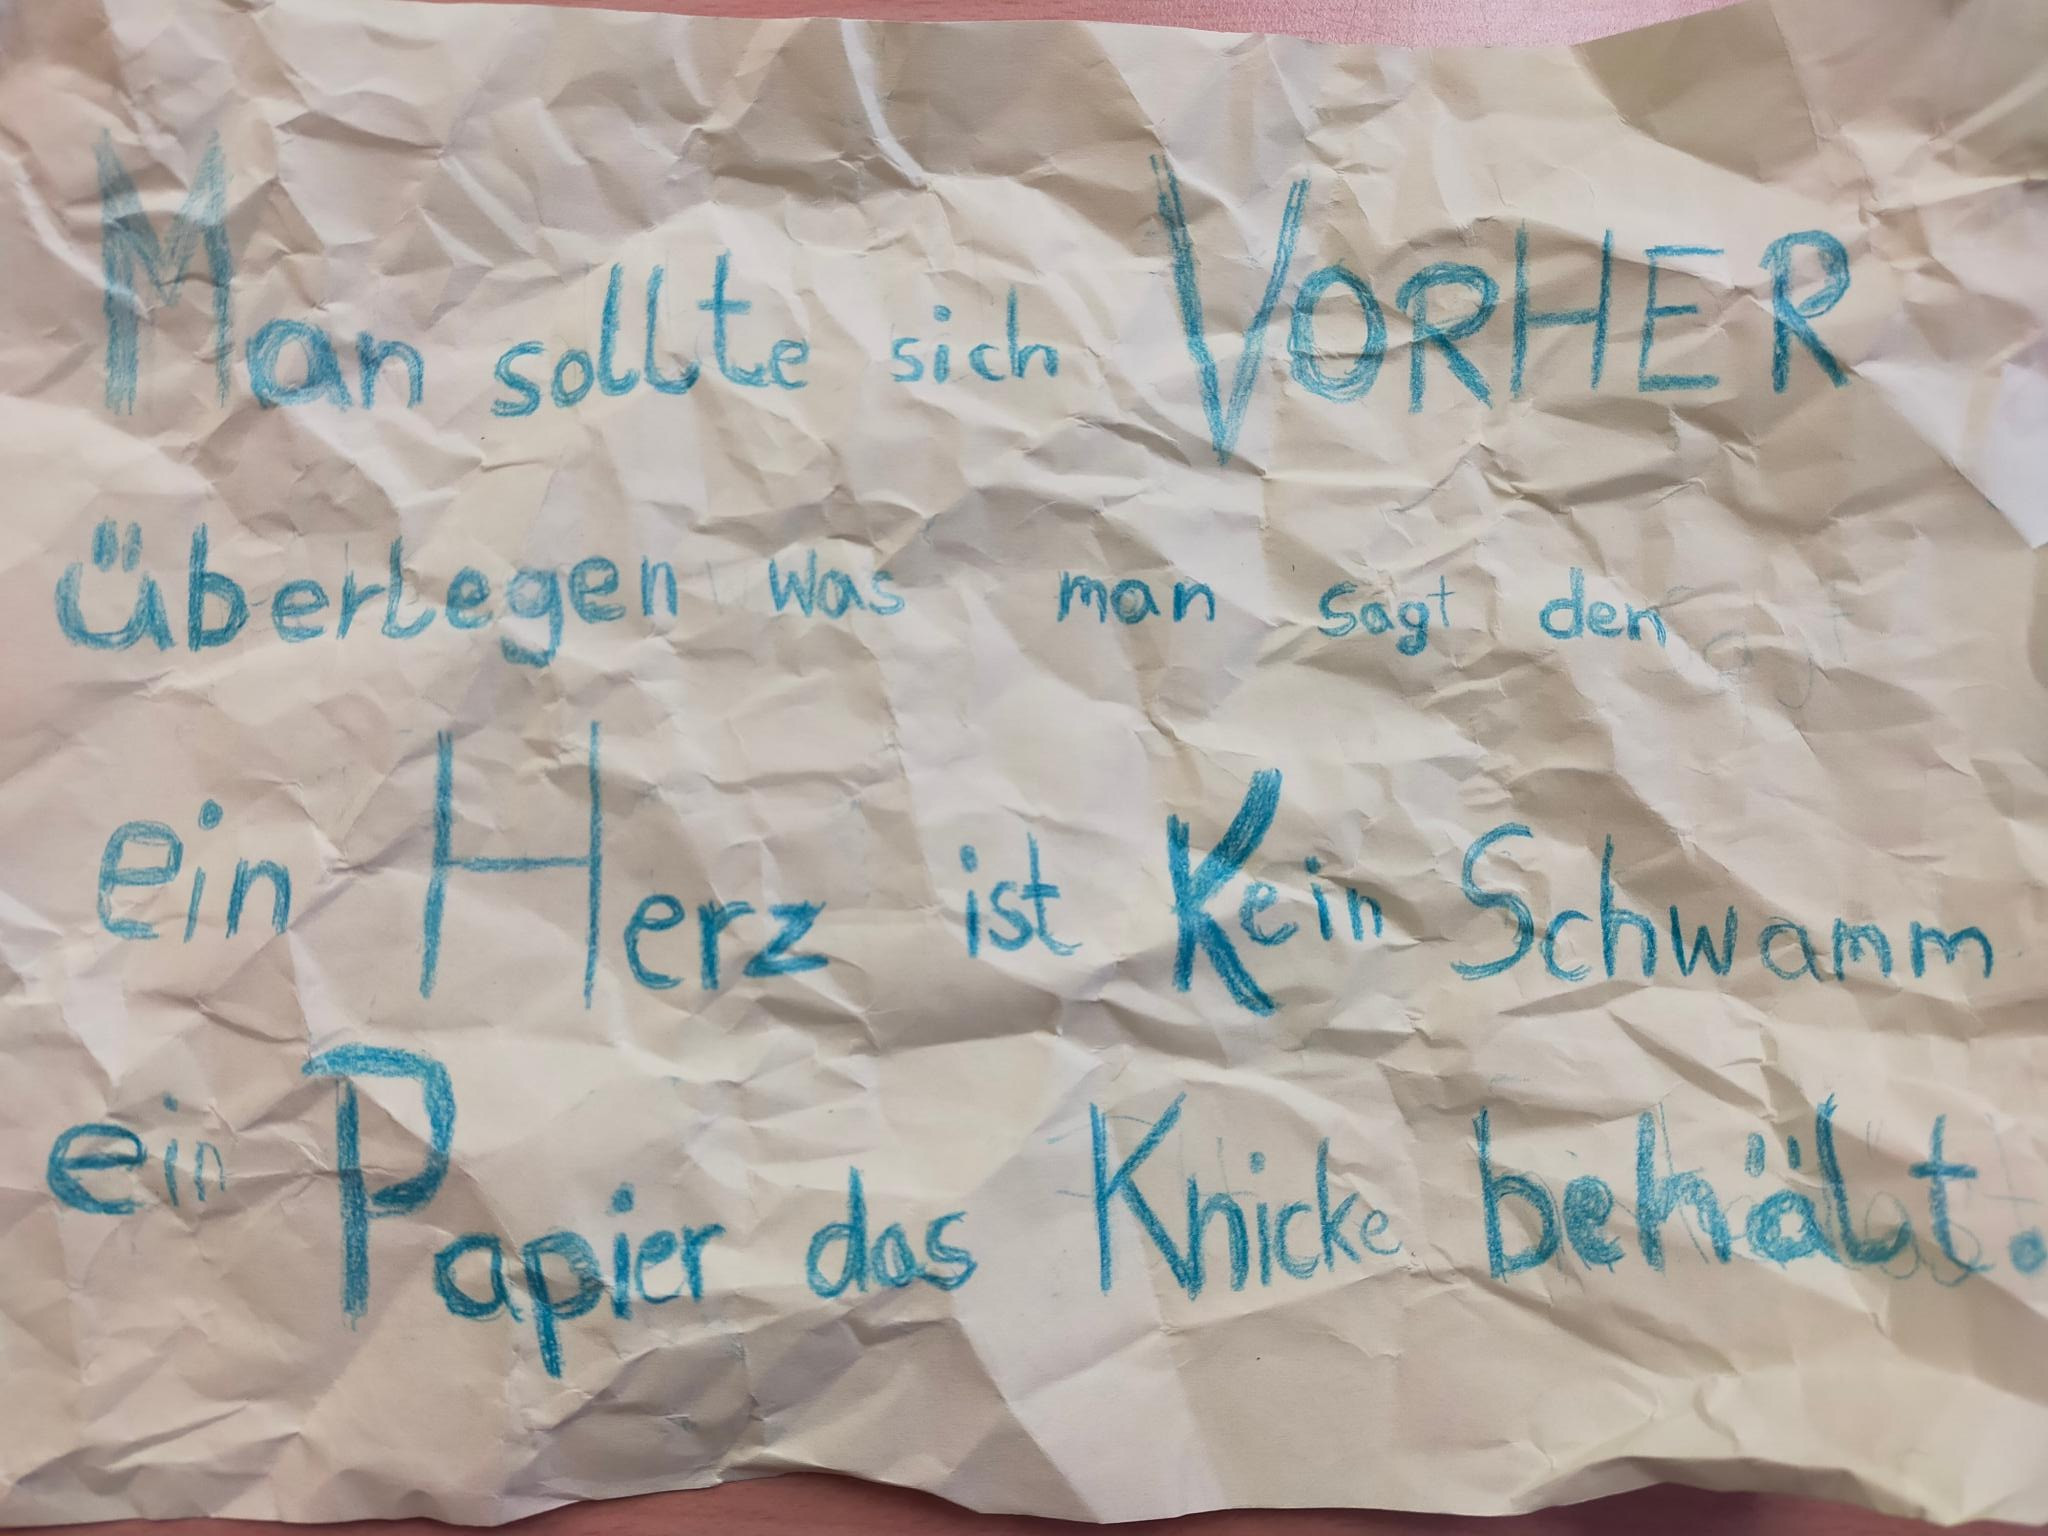 Man sollte sich VORHER
überlegen was man sagt den
ein Herz ist Kein Schwamm
ein Papier das Knicke behält.